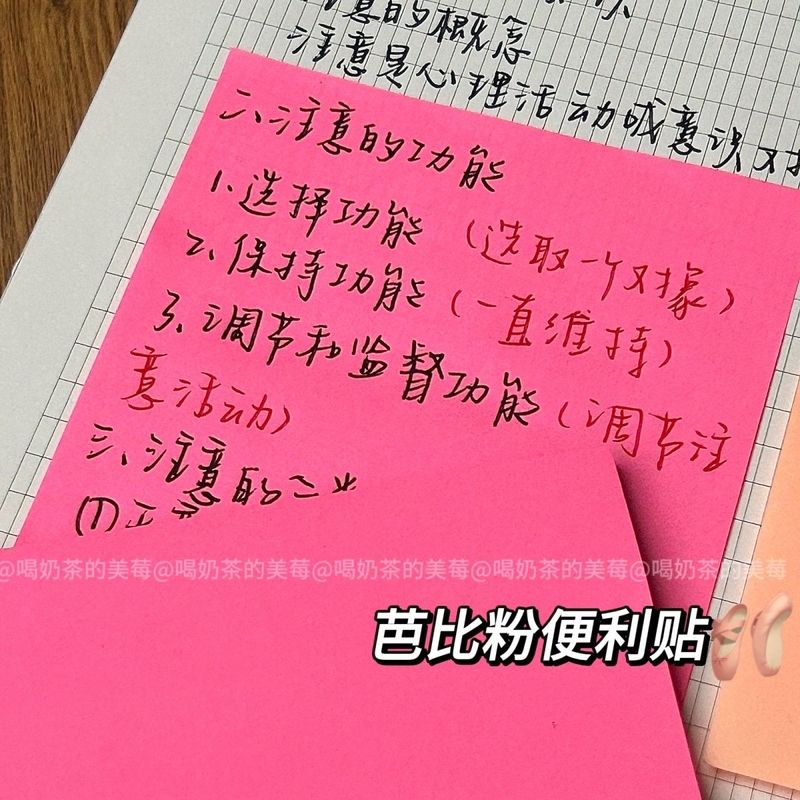 意的概念
注意是心理活动或意识对
二、注意的功能
1、选择功能（选取一个对象）
2、保持功能（一直维持）
3、调节和监督功能（调节注
意活动）
三、注意的
@喝奶茶的美莓@喝奶茶的美莓@喝奶茶的美莓@喝奶茶的美莓@喝奶茶的美莓
芭比粉便利贴